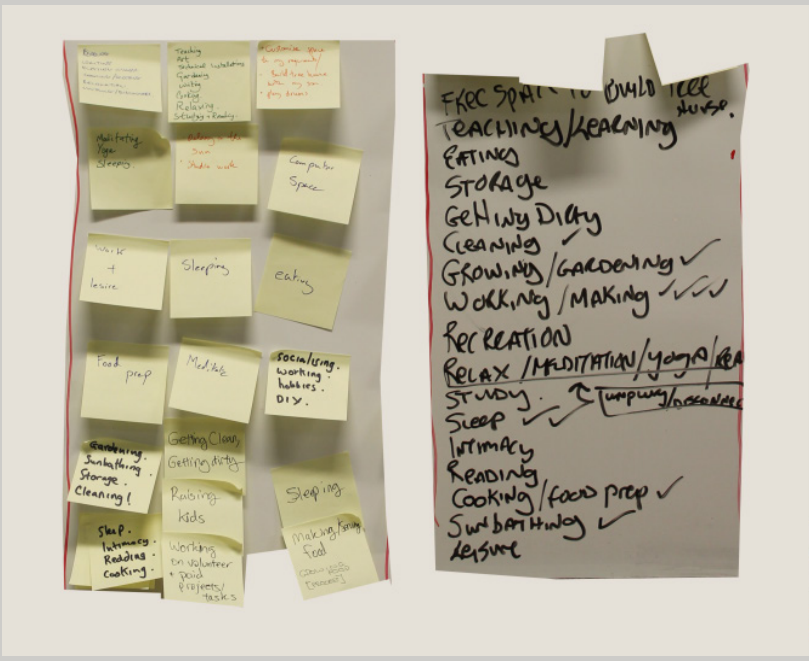 Teaching
Art
Technical Installations
Gardening
Writing
Cooking.
Relaxing.
Studying + Reading.
• Customise space
to my requests/
• Build tree house
with my son
• play drums
Meditating
Yoga
Sleeping.
Son
• Studio work
Computer
Space
Work
+
lesire
Sleeping
eating
Food
prep
Meditate
Socialising.
working.
hobbies.
D.I.Y.
Gardening.
Sunbathing.
Storage.
Cleaning!
Getting Clean,
Getting dirty
Raising
kids
Sleeping
Sleep.
Intimacy.
Reading.
Cooking.
Working
on volunteer
+ paid
projects/
tasks
Making/
food
TO BUILD TREE
HOUSE.
TEACHING/LEARNING
EATING
STORAGE
GETTING DIRTY
CLEANING ✓
GROWING/GARDENING ✓
WORKING/MAKING ✓✓✓✓
RECREATION
RELAX/MEDITATION/YOGA/REA
STUDY. ↑ UNPLUG/DISCONNEC
SLEEP ✓ ✓
INTIMACY
READING
COOKING/FOOD PREP ✓
SUNBATHING ✓
LEISURE